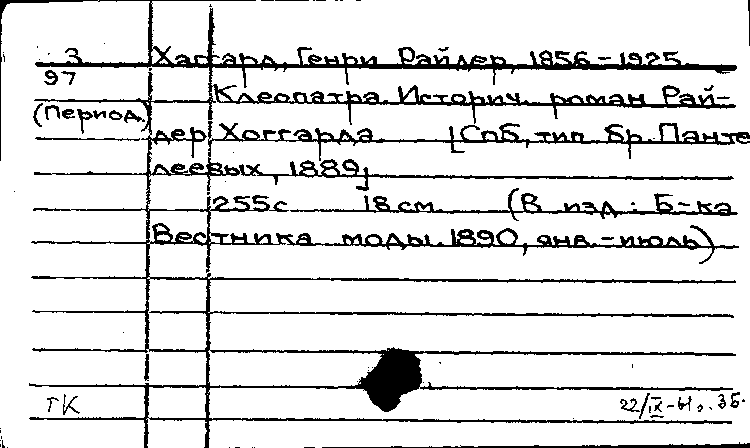 3 Хаггард, Генри Райдер, 1856-1925.
97 Клеопатра. Историч. роман Рай-
(Период.) дер Хоггарда. [Спб, тип. бр. Панте
леевых, 1889]
255с 18см. (В изд.: Б-ка
Вестника моды. 1890, янв.-июль)
ТК 22/IX-61г. ЗБ.